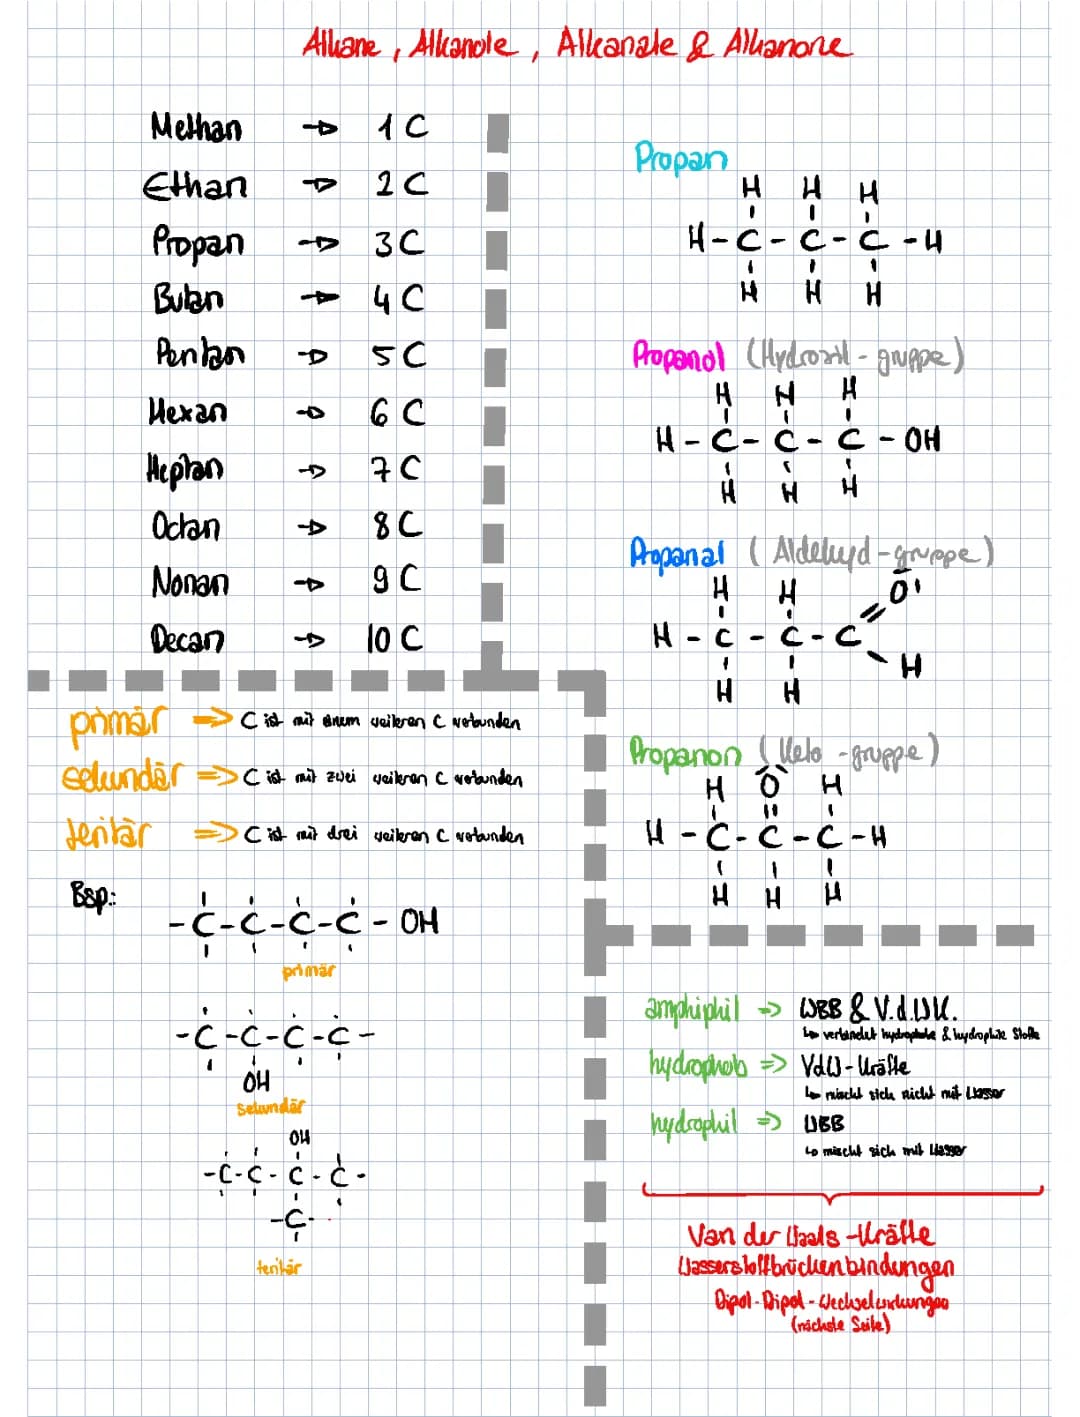 Alkane, Alkanole, Alkanale & Alkanone
Methan → 1 C
Ethan → 2 C
Propan → 3 C
Butan → 4 C
Pentan → 5 C
Hexan → 6 C
Heptan → 7 C
Octan → 8 C
Nonan → 9 C
Decan → 10 C
Propan
H H H
H - C - C - C - H
H H H
Propanol (Hydroxil-gruppe)
H H H
H - C - C - C - OH
H H H
Propanal (Aldehyd-gruppe)
H H O
H - C - C - C
H
H H
Propanon (Keto-gruppe)
H O H
H - C - C - C - H
H H H
primär => C ist mit einem weiteren C verbunden
sekundär => C ist mit zwei weiteren C verbunden
teritär => C ist mit drei weiteren C verbunden
Bsp.:
- C - C - C - C - OH
primär
- C - C - C - C -
OH
sekundär
OH
- C - C - C - C -
- C -
teritär
amphiphil => WBB & V.d.W.K.
↳ verbindet hydrophobe & hydrophile Stoffe
hydrophob => VdW-Kräfte
↳ mischt sich nicht mit Wasser
hydrophil => WBB
↳ mischt sich mit Wasser
Van der Waals-Kräfte
Wasserstoffbrückenbindungen
Dipol-Dipol-Wechselwirkungen
(nächste Seite)